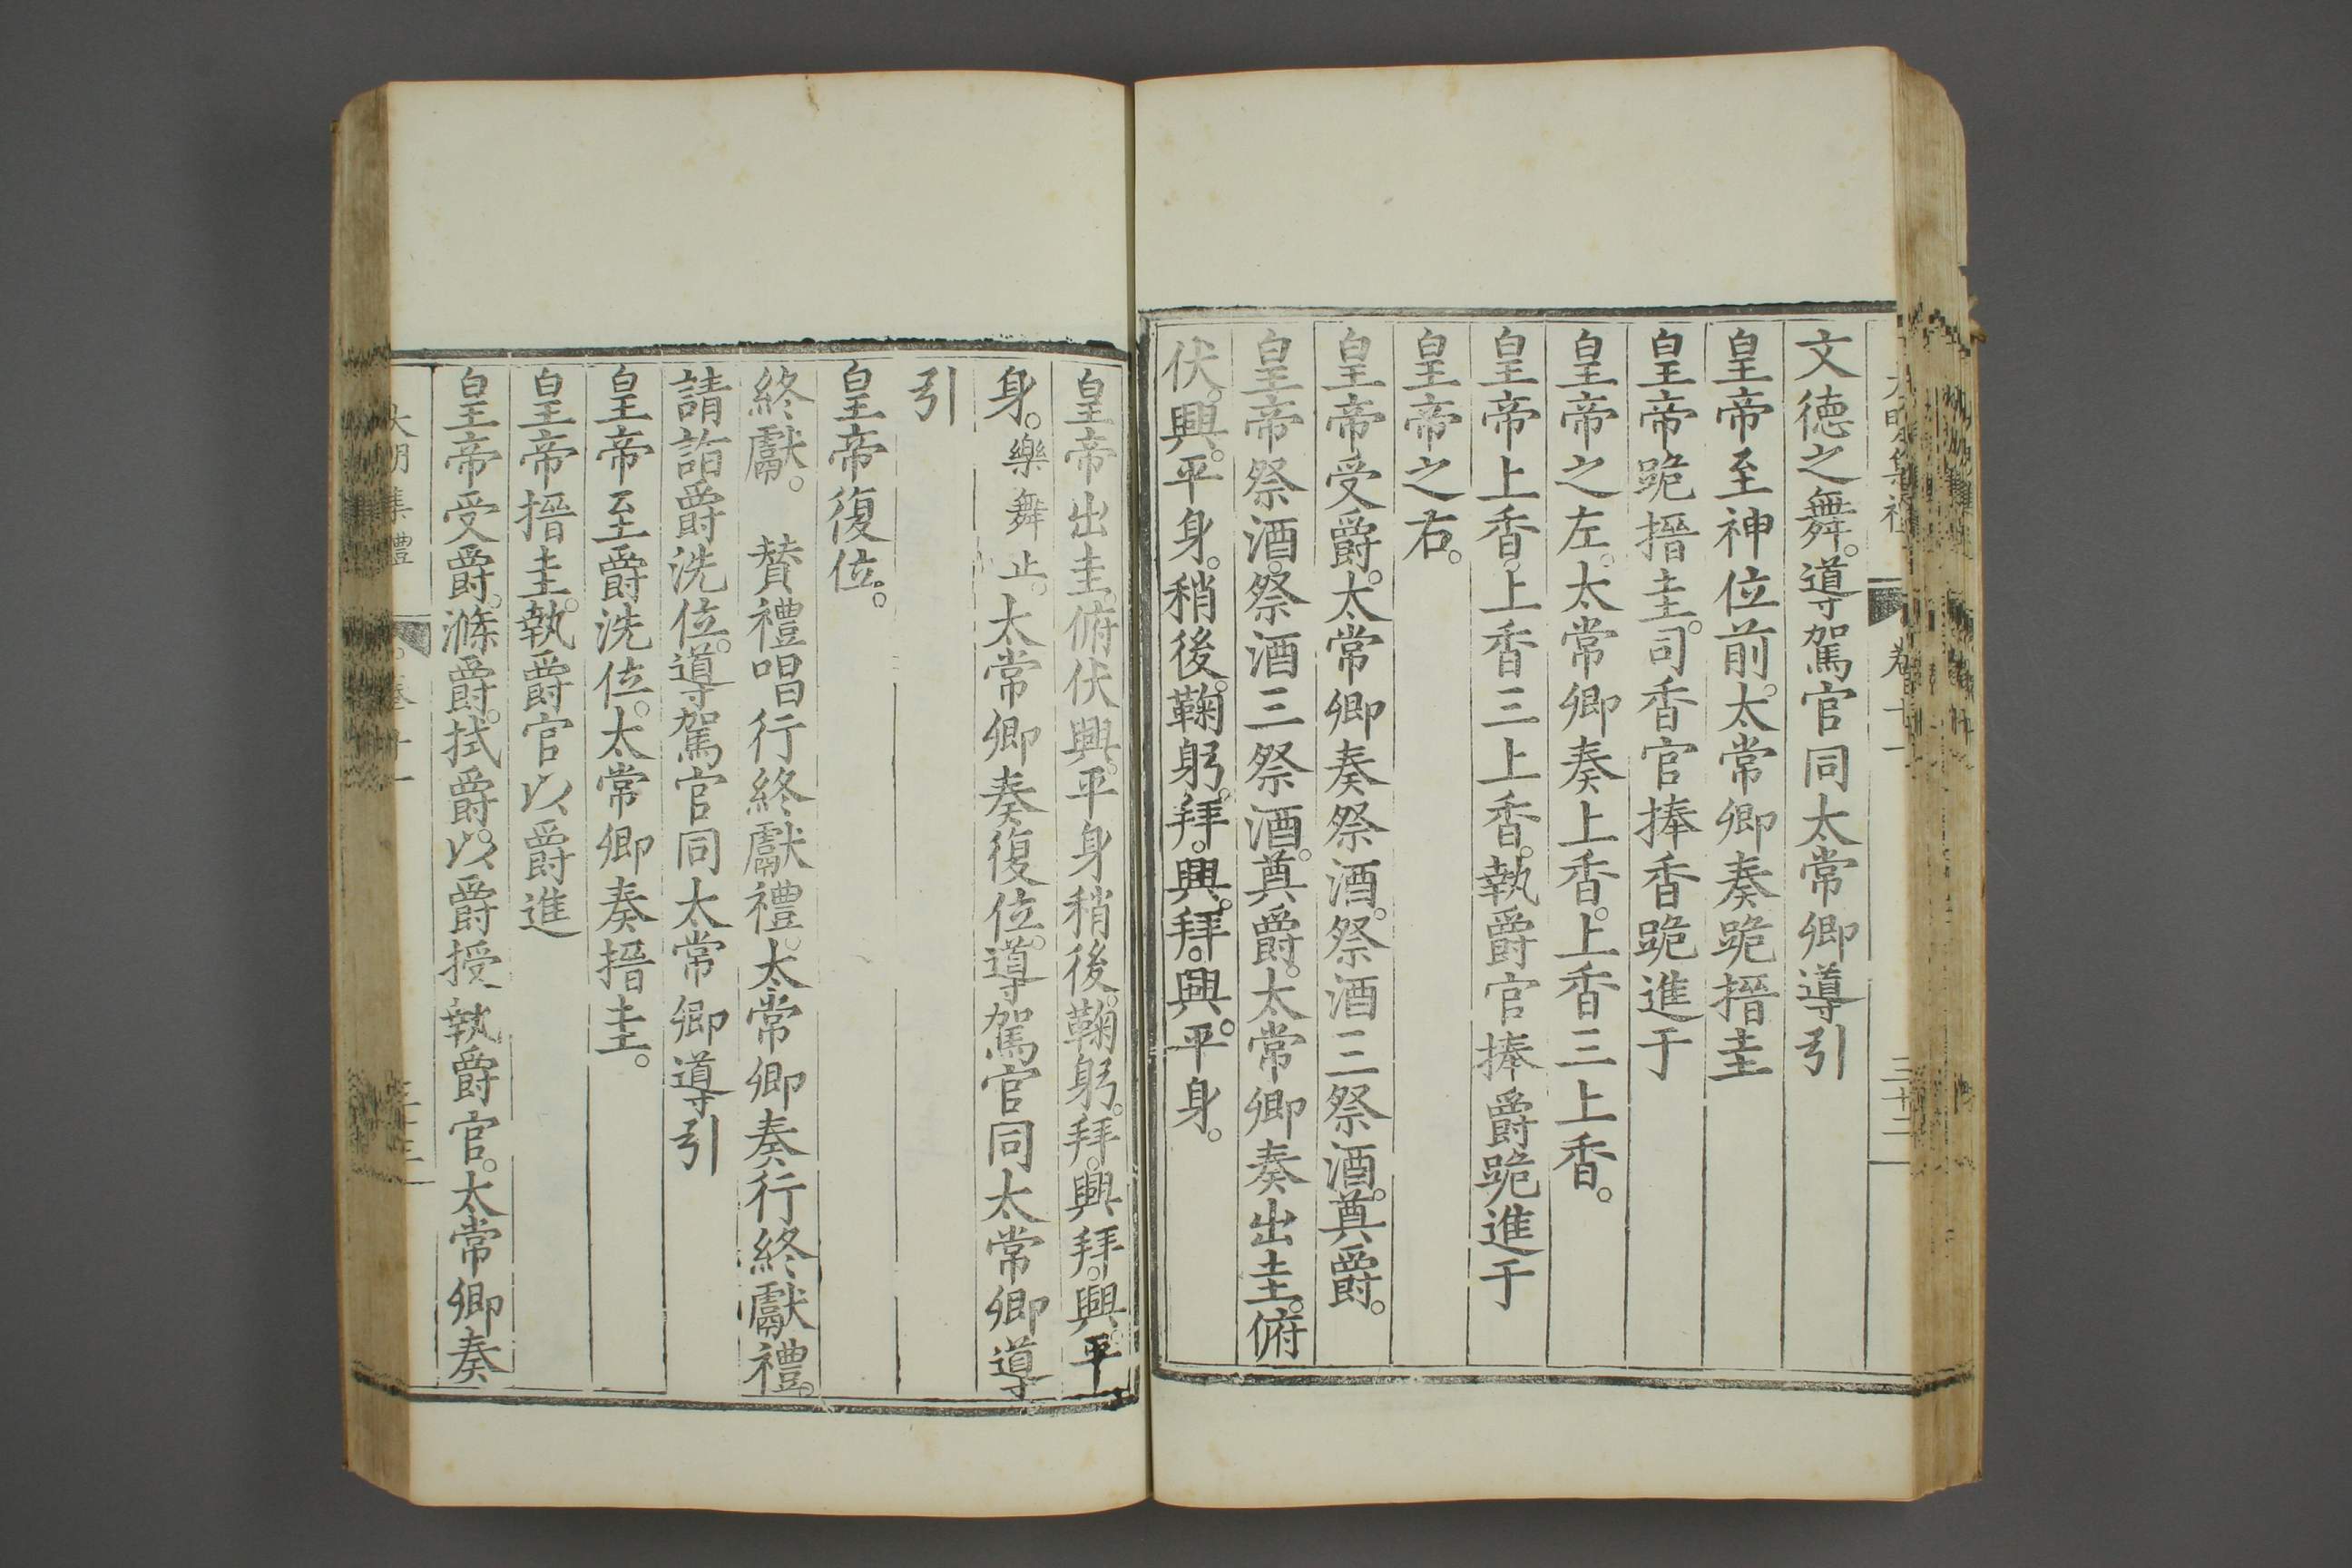 文徳之舞。導駕官同太常卿導引
皇帝至神位前。太常卿奏跪搢圭
皇帝跪搢圭。司香官捧香跪進于
皇帝之左。太常卿奏上香。上香三上香。
皇帝上香。上香三上香。執爵官捧爵跪進于
皇帝之右。
皇帝受爵。太常卿奏祭酒。祭酒三祭酒。奠爵。
皇帝祭酒。祭酒三祭酒。奠爵。太常卿奏出圭。俯
伏。興。平身。稍後。鞠躬。拜。興。拜。興。平身。
皇帝出圭。俯伏興。平身稍後。鞠躬。拜。興。拜。興。平
身。樂舞止。太常卿奏復位。導駕官同太常卿導
引
皇帝復位。
終獻。 賛禮唱行終獻禮。太常卿奏行終獻禮。
請詣爵洗位。導駕官同太常卿導引
皇帝至爵洗位。太常卿奏搢圭。
皇帝搢圭。執爵官以爵進
皇帝受爵。滌爵。拭爵。以爵授執爵官。太常卿奏
大明集禮 卷十一